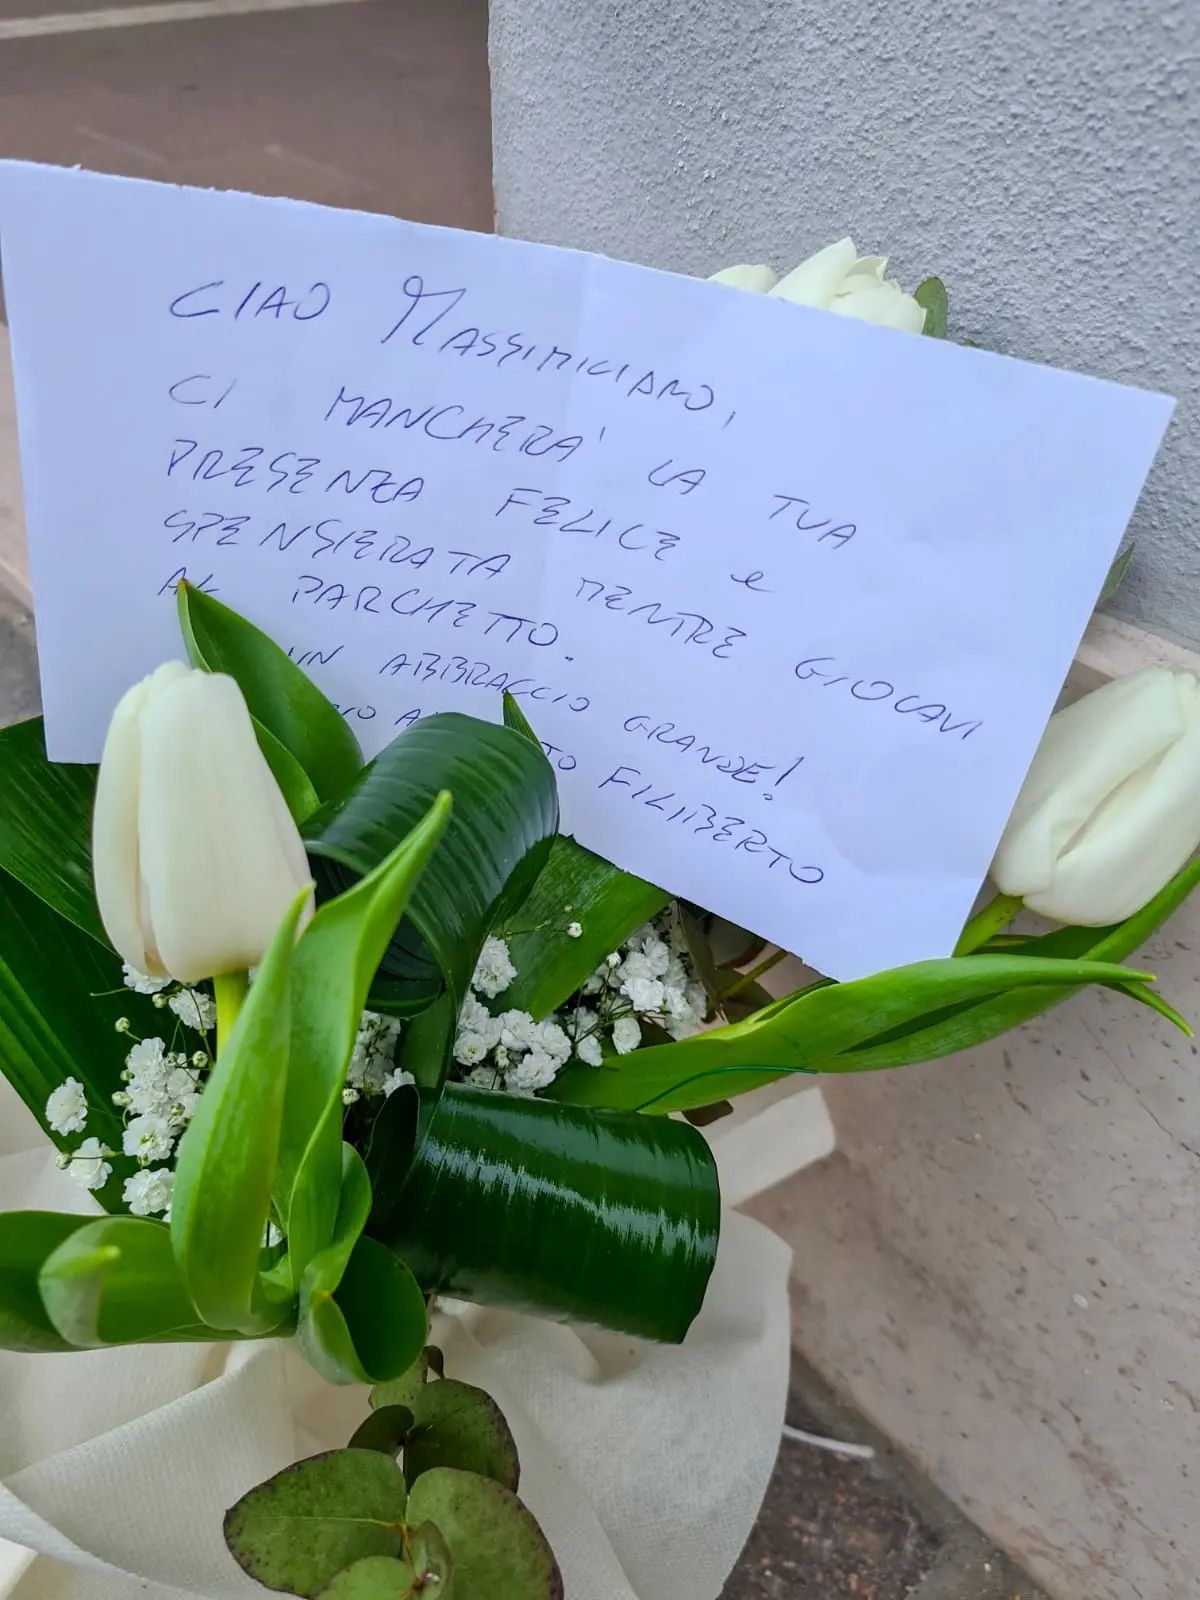 CIAO MASSIMILIANO,
CI MANCHERA' LA TUA
PRESENZA FELICE e
SPENSIERATA MENTRE GIOCAVI
AL PARCHETTO.
UN ABBRACCIO GRANDE!
FILIBERTO